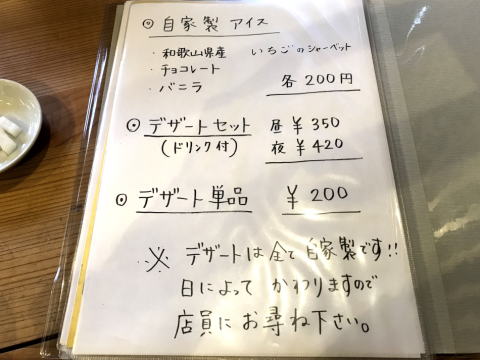 ◎ 自家製 アイス
・和歌山県産 いちごのシャーベット
・チョコレート
・バニラ 各200円
◎ デザートセット 昼 ¥350
(ドリンク付) 夜 ¥420
◎ デザート単品 ¥200
※ デザートは全て自家製です!!
日によって かわりますので
店員に お尋ね下さい。